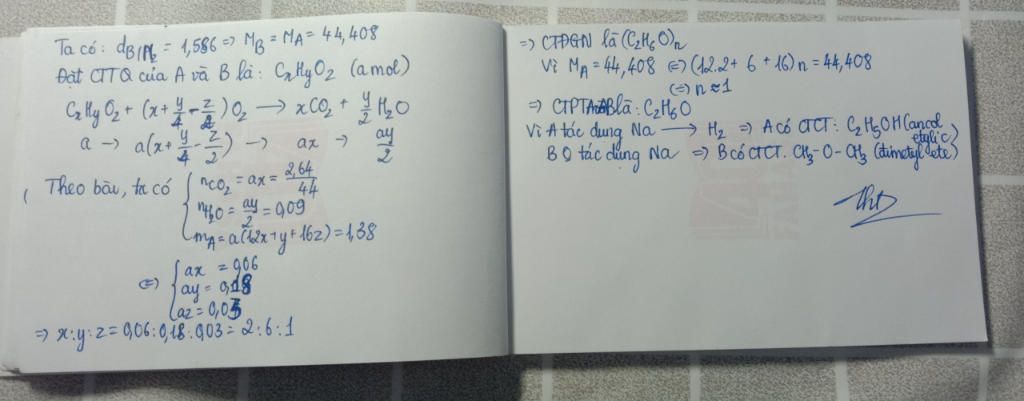 Ta có: d_{B/N_2} = 1,586 => M_B = M_A = 44,408
Đặt CTTQ của A và B là: C_xH_yO_z (a mol)
C_xH_yO_z + (x + y/4 - z/2)O_2 → xCO_2 + y/2 H_2O
a → a(x + y/4 - z/2) → ax → ay/2
Theo bài, ta có { n_{CO_2} = ax = 2,64/44
n_{H_2O} = ay/2 = 0,09
m_A = a(12x + y + 16z) = 1,38
<=> { ax = 0,06
ay = 0,18
az = 0,03
=> x:y:z = 0,06:0,18:0,03 = 2:6:1
=> CTĐGN là (C_2H_6O)_n
Vì M_A = 44,408 <=> (12.2 + 6 + 16)n = 44,408
<=> n ≈ 1
=> CTPT A B là: C_2H_6O
Vì A tác dụng Na → H_2 => A có CTCT: C_2H_5OH (ancol etylic)
B 0 tác dụng Na => B có CTCT. CH_3-O-CH_3 (đimetyl ete)